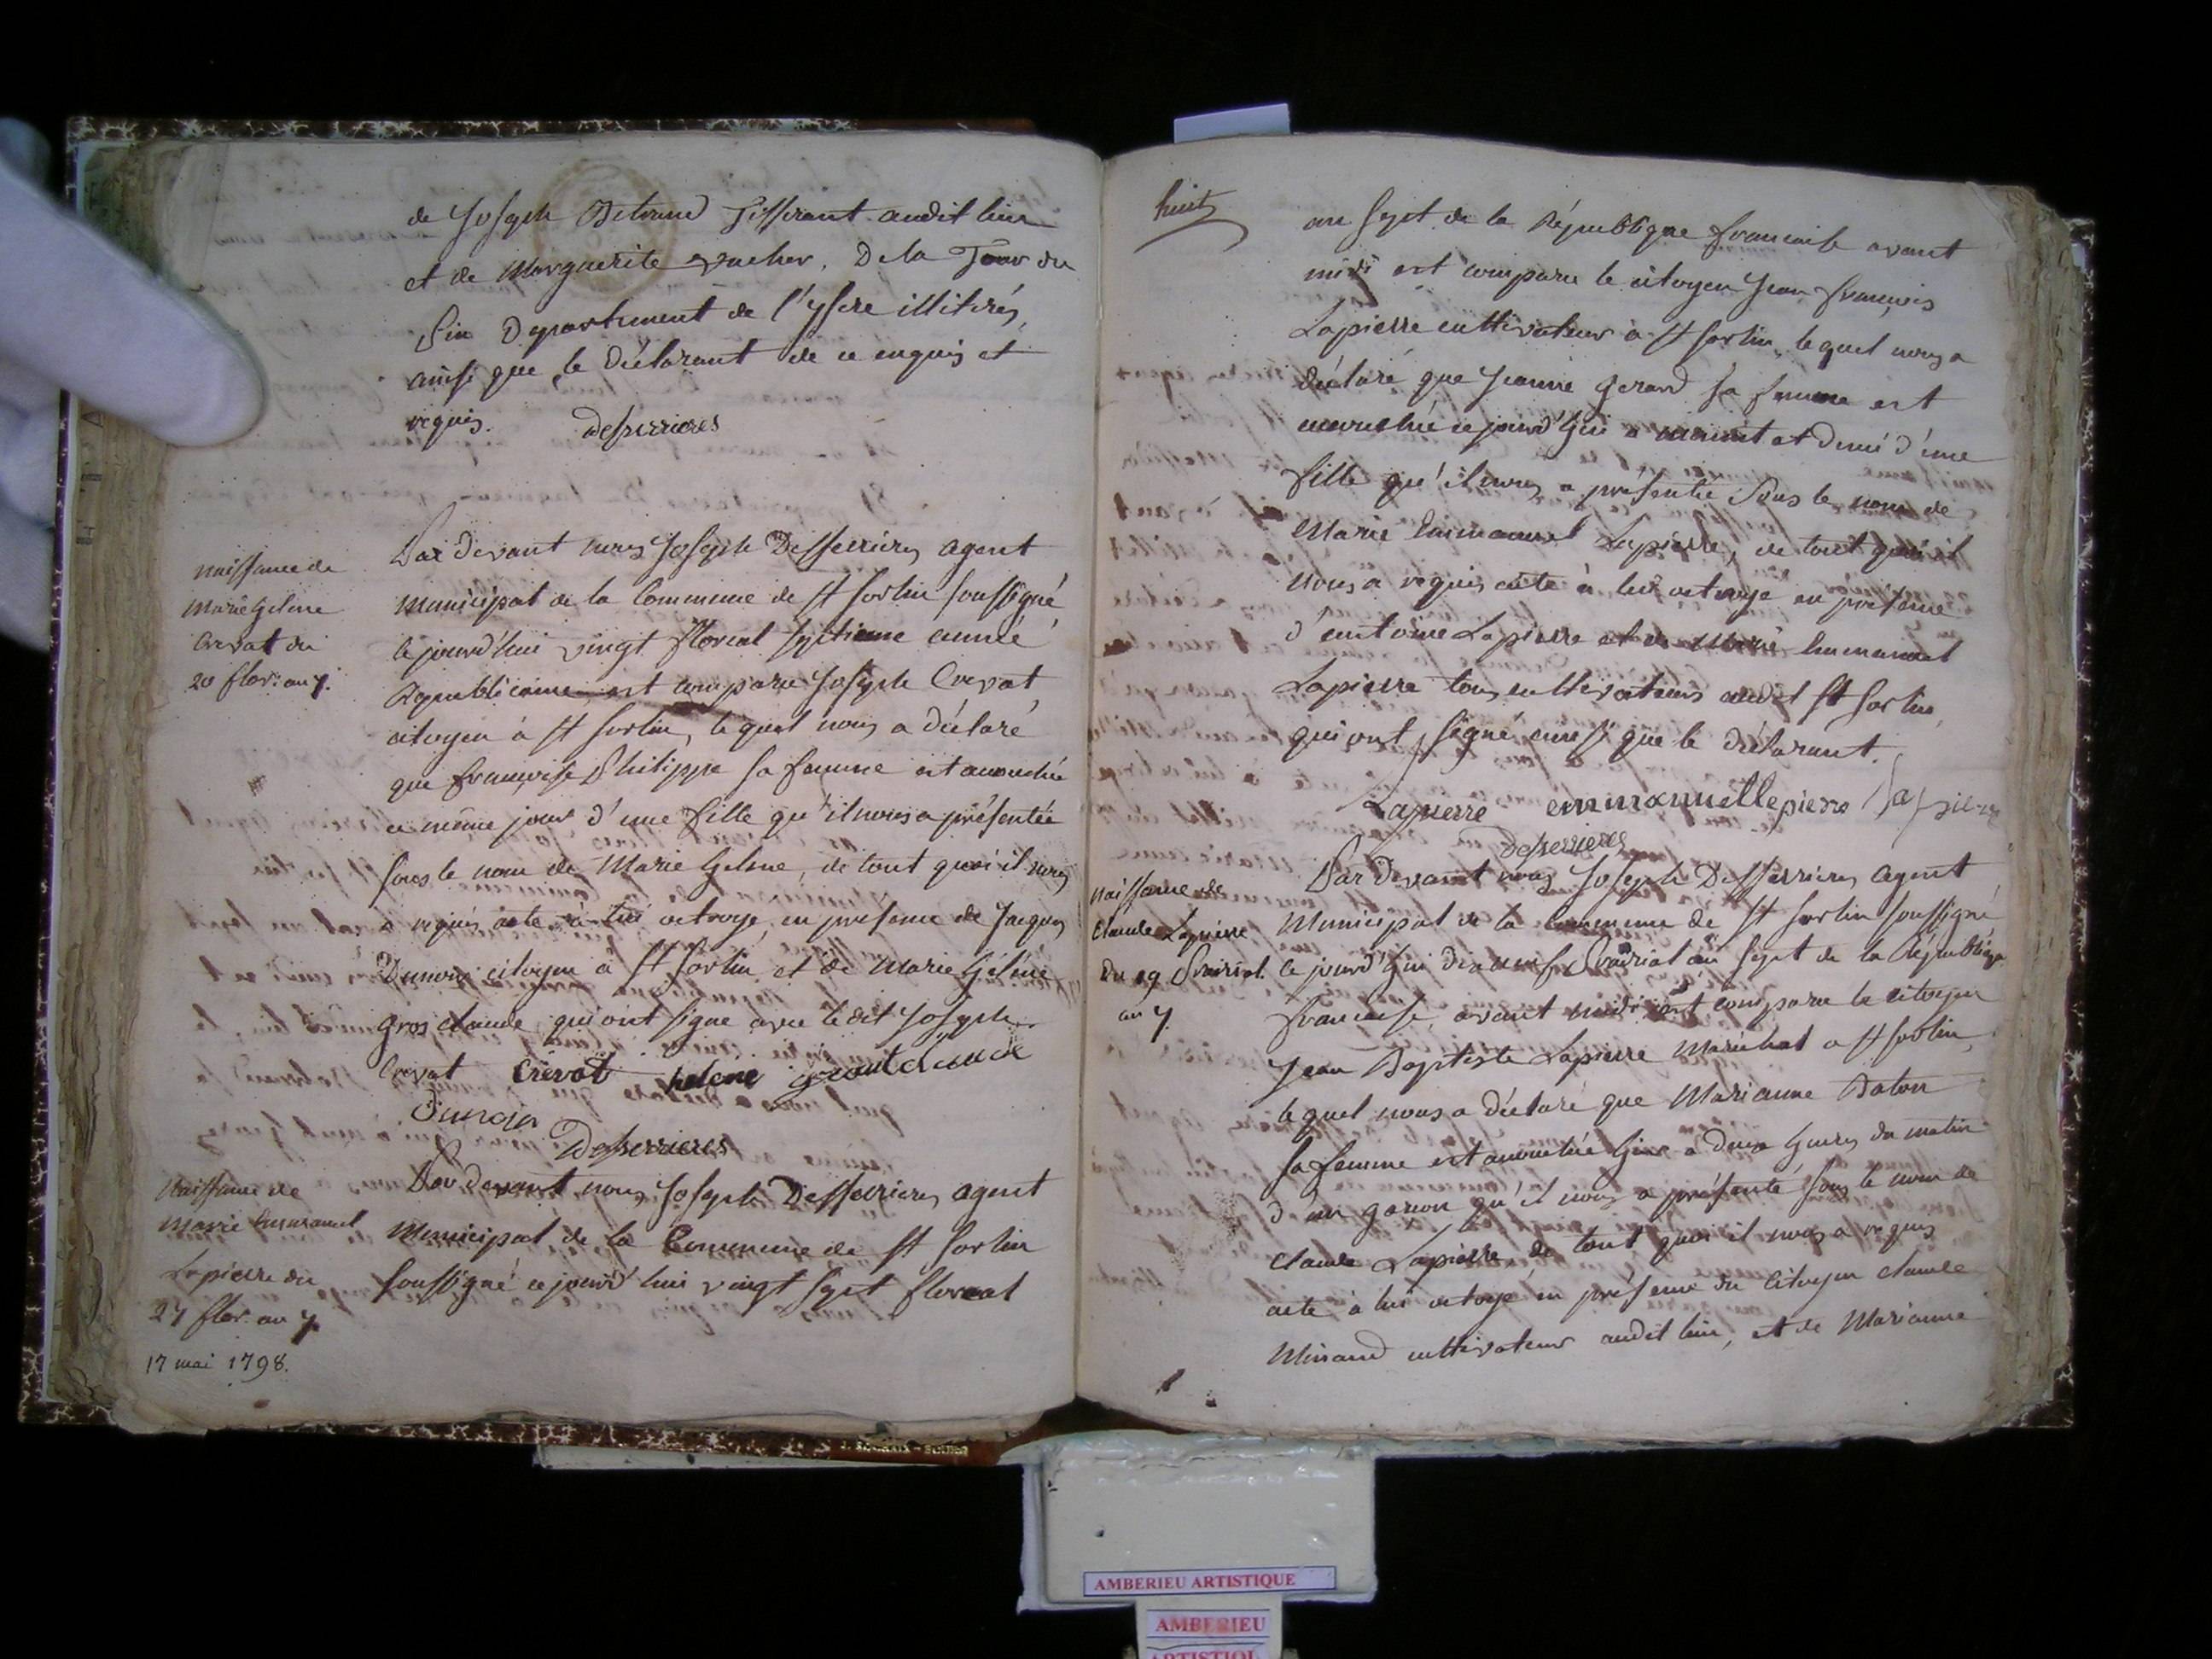 de Joseph Bitraud Tisserant audit lieu
et de Marguerite vacher, De la Tour du
Pin Département de l'ysere illitirés,
ainsi que le déclarant de ce enquis et
requis. Desserrieres
naissance de
Marie Gelene
Crevat du
20 flor. an 7.
Par devant nous Joseph Desserrieres agent
municipal de la Commune de St Sorlin soussigné
ce jourd'hui vingt floreal septieme année
Republicaine est comparu Joseph Crevat
citoyen à St Sorlin, lequel nous a déclaré
que françoise Philippe sa femme est accouchée
ce même jour d'une fille qu'il nous a présentée
sous le nom de Marie Gelene, de tout quoi il nous
a requis acte à lui octroyé, en presence de Jacques
Dunoir citoyen à St Sorlin et de Marie Gélene
Gros claude, qui ont signé avec le dit Joseph
Crevat Crevat helene groautclaude
Dunoir
Desserrieres
Naissance de
Marie Emmanuel
Lapierre du
27 flor. an 7.
17 mai 1798.
Par devant nous Joseph Desserrieres agent
Municipal de la Commune de St Sorlin
soussigné ce jourd'hui vingt sept floreal
huit
an sept de la République francaise avant
midi est comparu le citoyen Jean françois
Lapierre cultivateur à St Sorlin, lequel nous a
déclaré que Jeanne Gerard sa femme est
accouchée ce jourd'hui à minuit et demi d'une
fille qu'il nous a présentée sous le nom de
Marie Emmanuel Lapierre, de tout quoi il
nous a requis acte à lui octroyé en présence
d'antoine Lapierre et de Marie Emmanuel
Lapierre tous cultivateurs audit St Sorlin,
qui ont signé ainsi que le déclarant.
Lapierre emmanuellepierre Lapierre
Desserrieres
naissance de
Claude Lapierre
du 19 Prairial
an 7.
Par devant nous Joseph Desserrieres agent
Municipal de la Commune de St Sorlin soussigné
ce jourd'hui dix neuf Prairial an sept de la République
francaise, avant midi est comparu le citoyen
Jean Baptiste Lapierre Maréchal a St Sorlin,
lequel nous a déclaré que Marianne Baton
sa femme est accouchée hier à deux heures du matin
d'un garcon qu'il nous a présenté sous le nom de
claude Lapierre, de tout quoi il nous a requis
acte à lui octroyé en présence du Citoyen claude
Minand cultivateur audit lieu, et de Marianne
AMBERIEU ARTISTIQUE
AMBERIEU
ARTISTIQUE